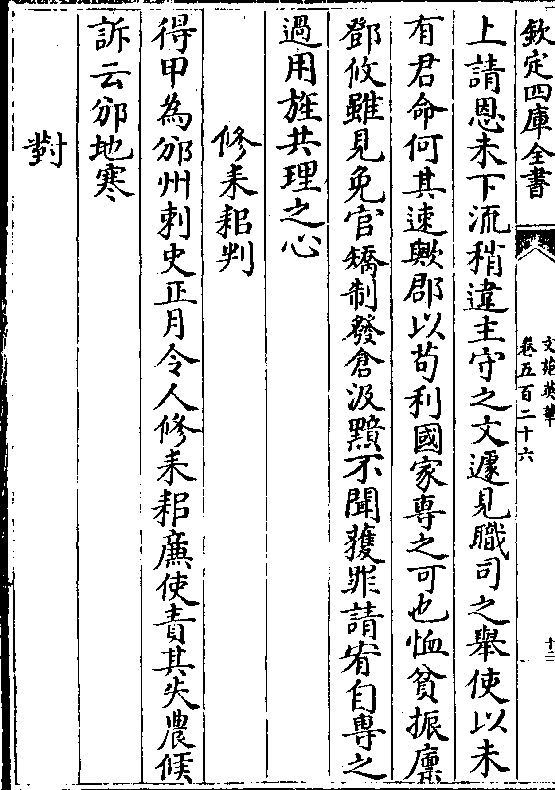 欽定四庫全書
文苑英華
卷五百二十六
十三
上請恩未下流稍違主守之文遽見職司之舉使以未
有君命何其速歟郡以苟利國家専之可也恤貧振廩
鄧攸雖見免官矯制發倉汲黯不聞獲罪請宥自専之
過用旌共理之心
修耒耜判
得甲為邠州刺史正月令人修耒耜廉使責其失農候
訴云邠地寒
對